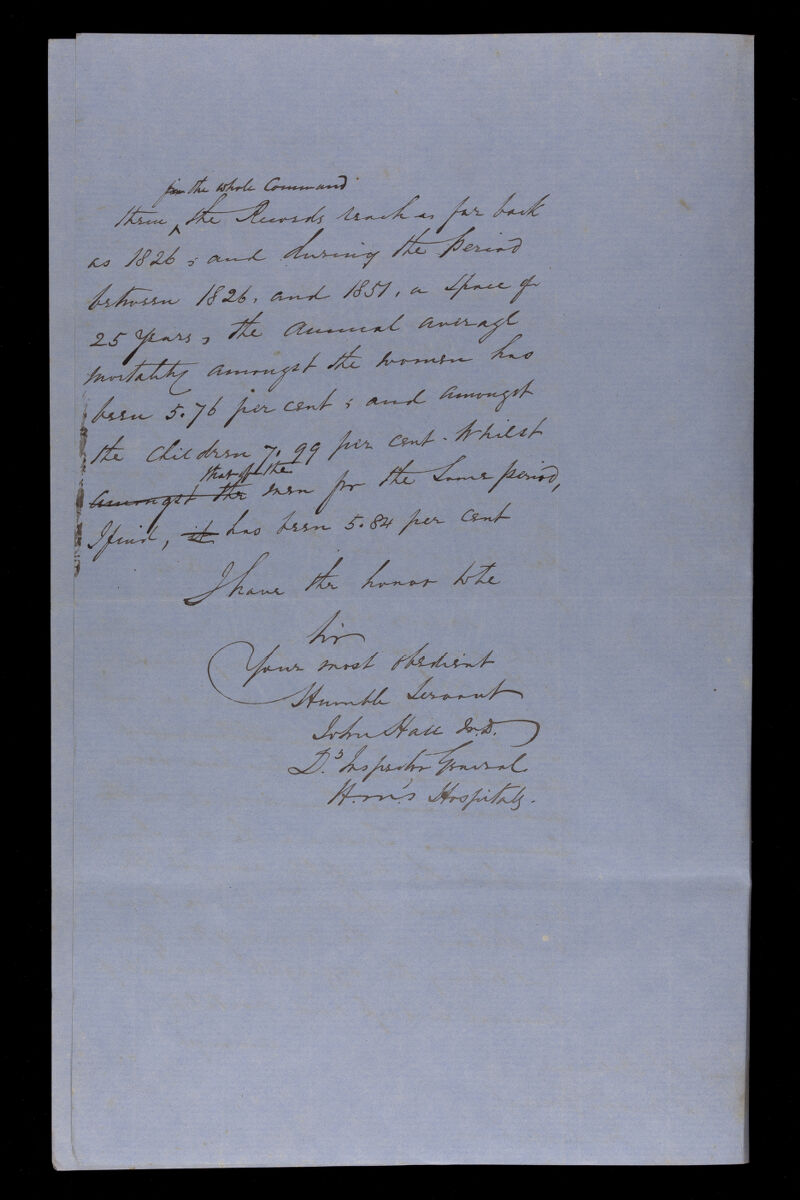 for the whole Command
them the Records reach as far back
as 1826; and during the period
between 1826, and 1851, a space of
25 Years, the annual average
mortality amongst the women has
been 5.76 per cent; and amongst
the children 7.99 per cent. Whilst
that of the
amongst the men for the same period,
I find, it has been 5.84 per cent
I have the honor to be
Sir
Your most obedient
Humble Servant
John Hall M.D.
Dy Inspector General
H.M's Hospitals.